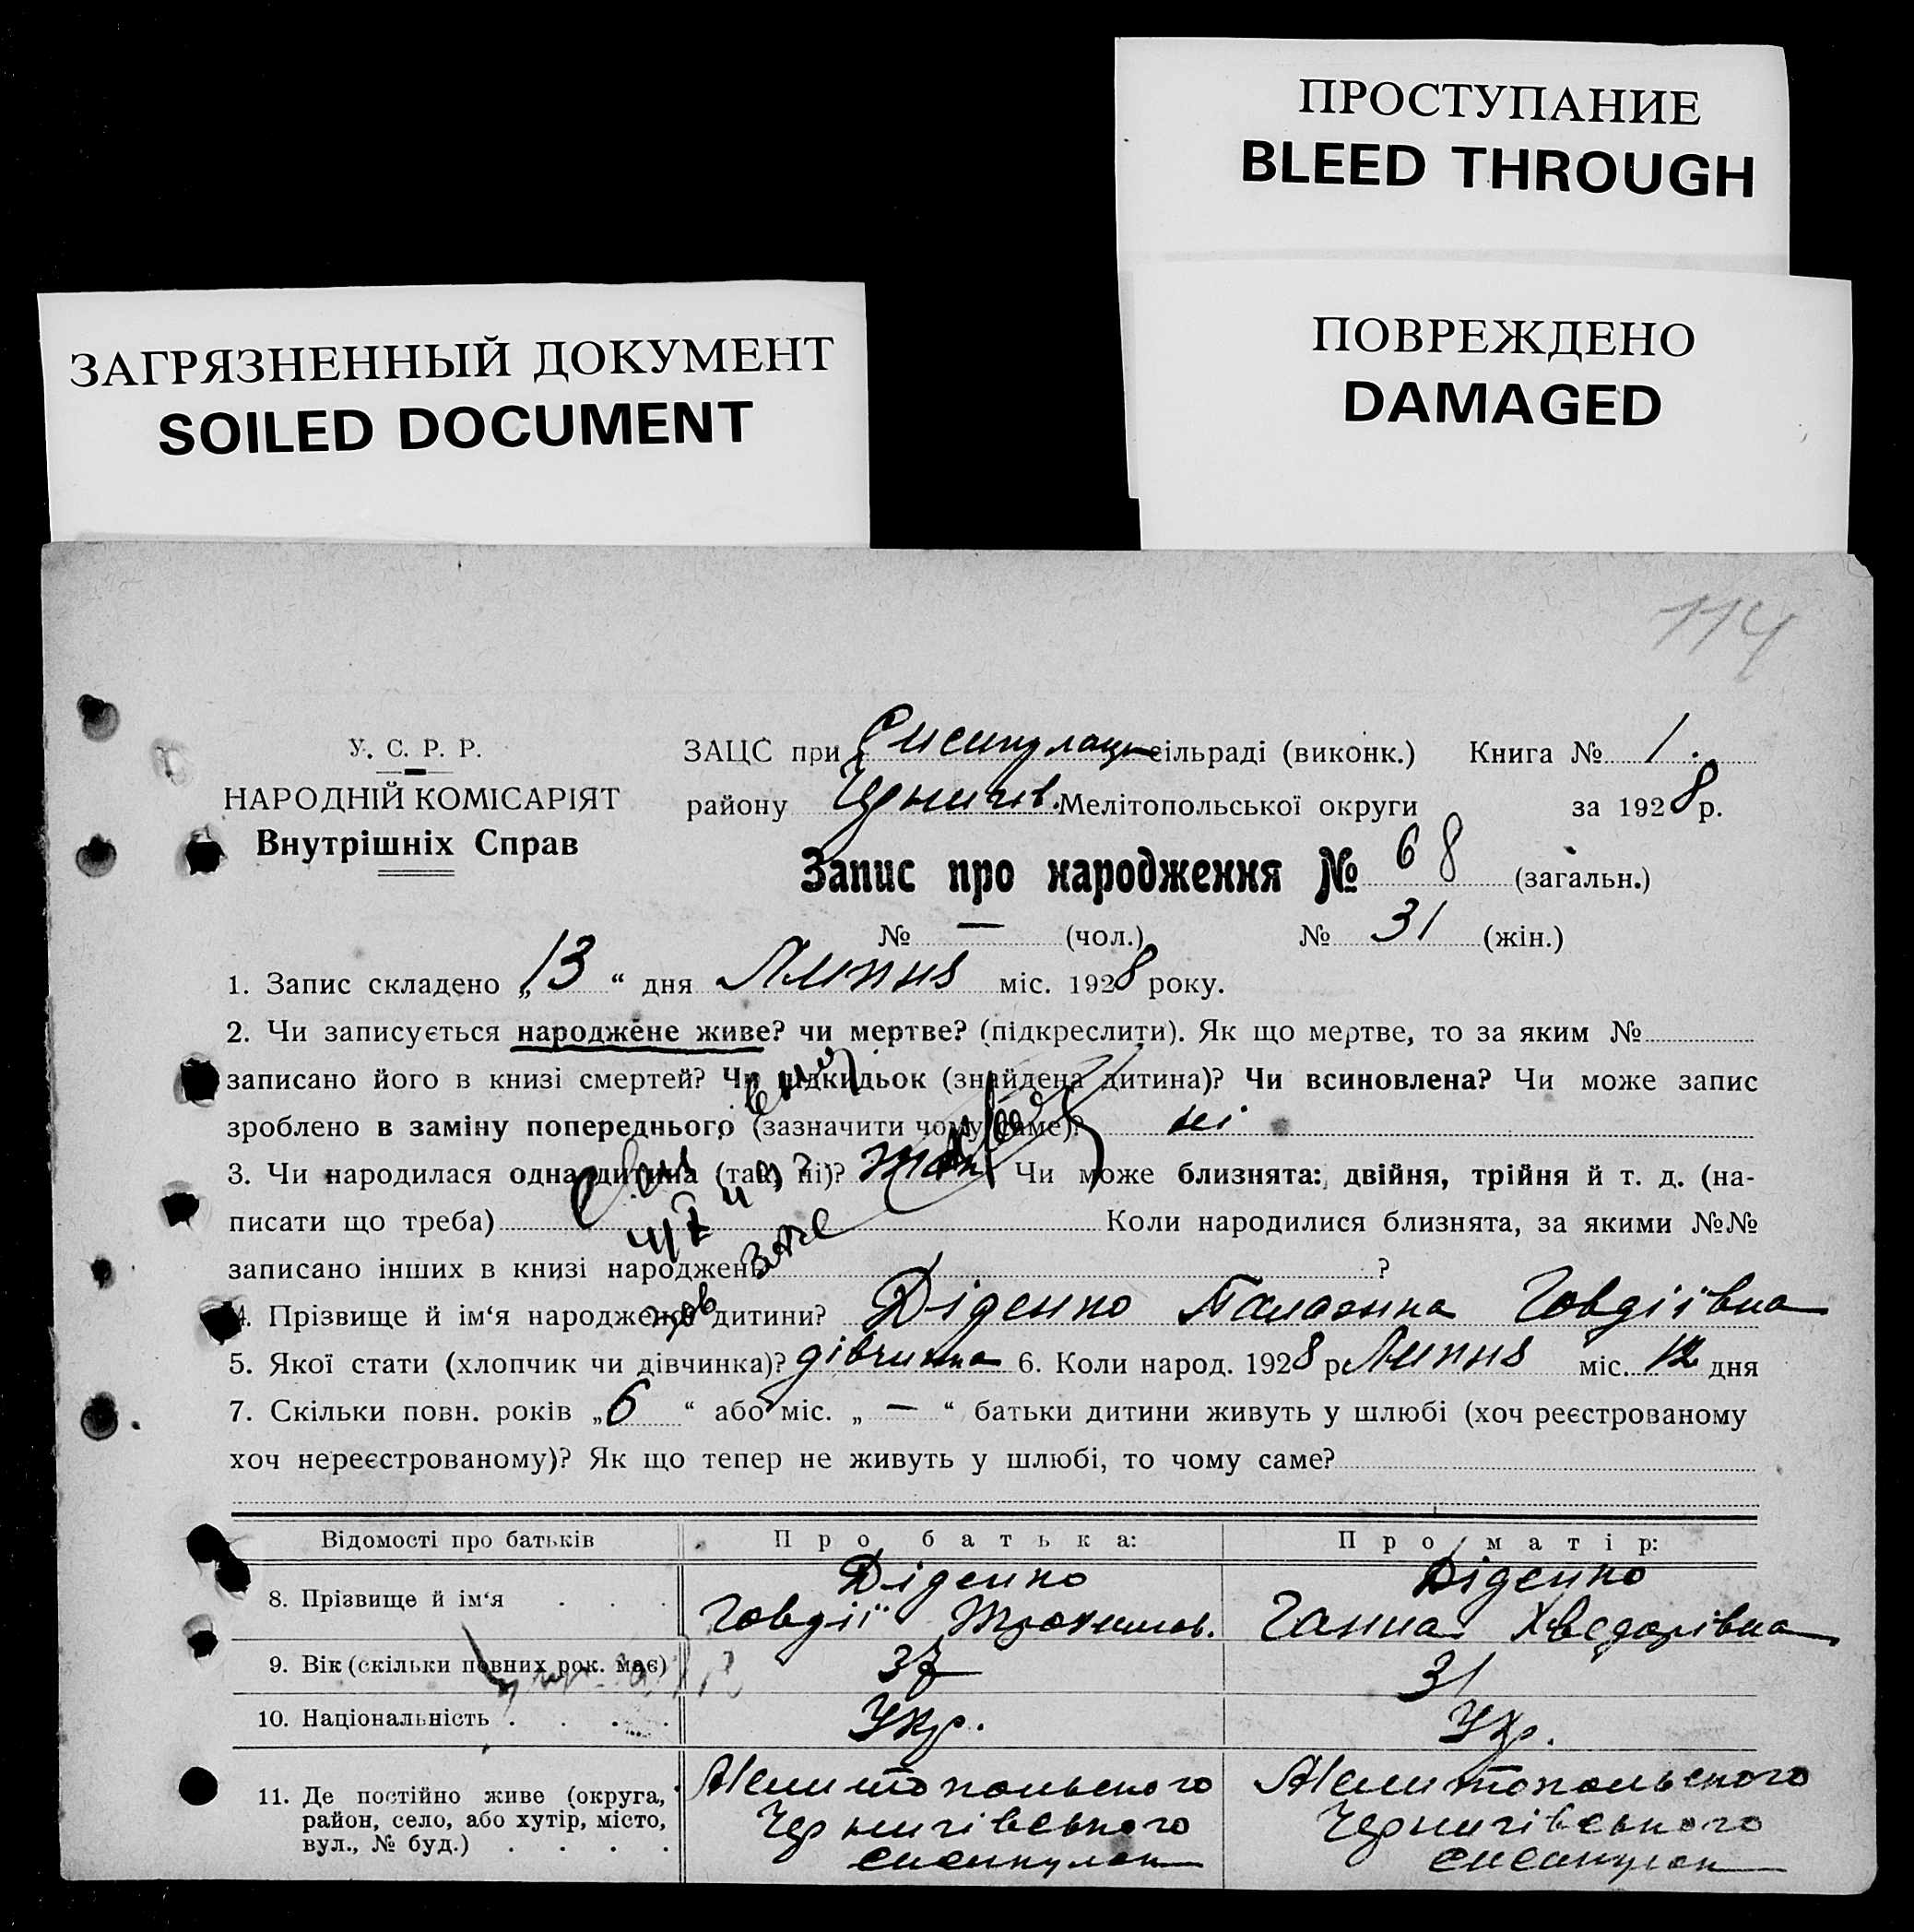 ПРОСТУПАНИЕ
BLEED THROUGH
ЗАГРЯЗНЕННЫЙ ДОКУМЕНТ
SOILED DOCUMENT
ПОВРЕЖДЕНО
DAMAGED
114
У. С. Р. Р.
НАРОДНІЙ КОМІСАРІЯТ
Внутрішніх Справ
ЗАЦС при сільраді (виконк.) Книга № 1.
району Черниговс. Мелітопольської округи за 1928 р.
Запис про народження № 68 (загальн.)
№ — (чол.) № 31 (жін.)
1. Запис складено „13“ дня Липня міс. 1928 року.
2. Чи записується народжене живе? чи мертве? (підкреслити). Як що мертве, то за яким №
записано його в книзі смертей? Чи підкидьок (знайдена дитина)? Чи всиновлена? Чи може запис
зроблено в заміну попереднього (зазначити чому саме)? ні
3. Чи народилася одна дитина (так, ні)? так Чи може близнята: двійня, трійня й т. д. (на-
писати що треба) Коли народилися близнята, за якими №№
записано інших в книзі народжень ?
4. Прізвище й ім‘я народженої дитини? Діденко Палажка Говдіївна
5. Якої стати (хлопчик чи дівчинка)? дівчинка 6. Коли народ. 1928 р. Липня міс. 12 дня
7. Скільки повн. років „6“ або міс. „—“ батьки дитини живуть у шлюбі (хоч реєстрованому
хоч нереєстрованому)? Як що тепер не живуть у шлюбі, то чому саме?
Відомості про батьків Про батька: Про матір:
8. Прізвище й ім‘я Діденко Говдій Трохимов. Діденко Ганна Хведорівна
9. Вік (скільки повних рок. має) 37 31
10. Національність Укр. Укр.
11. Де постійно живе (округа, район, село, або хутір, місто, вул., № буд.)
Мелитопольского Мелитопольского
Чернигівського Чернигівського